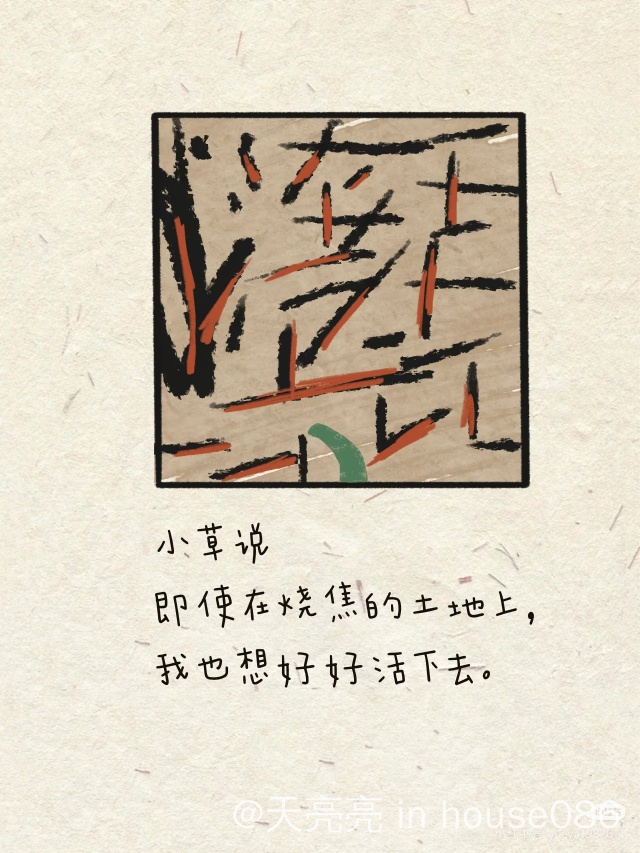 小草说
即使在烧焦的土地上，
我也想好好活下去。
@天亮亮 in house086